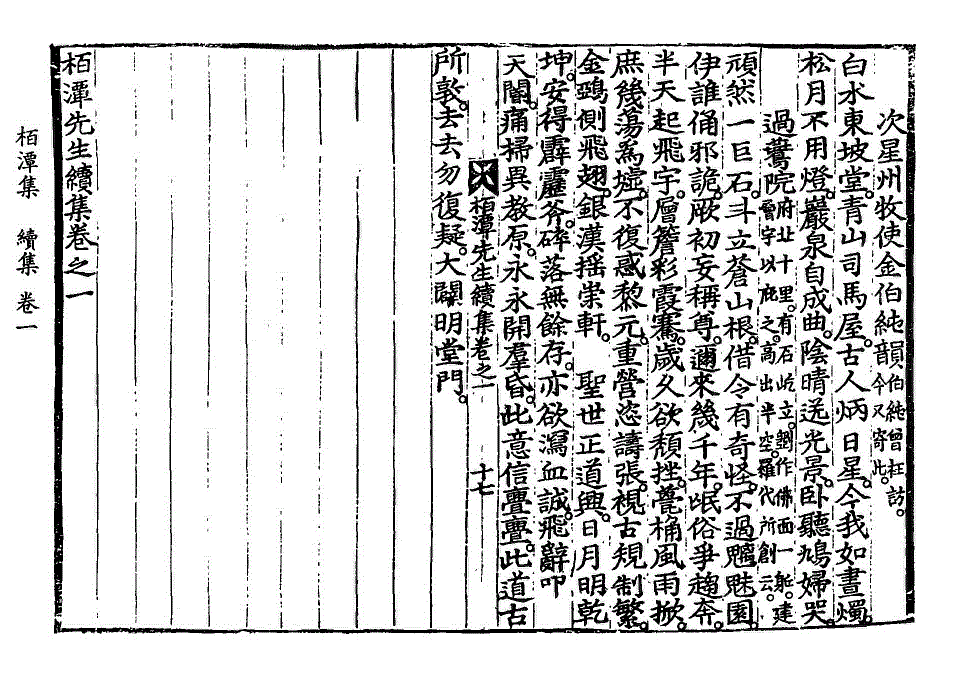 次星州牧使金伯純韻伯純曾枉訪。今又寄此。
白水東坡堂。青山司馬屋。古人炳日星。今我如晝燭。
松月不用燈。巖泉自成曲。陰晴送光景。臥聽鳩婦哭。
過鷖院府北十里。有石屹立。斲作佛面一軀。建鷖宇以庇之。高出半空。羅代所創云。
頑然一巨石。斗立蒼山根。借令有奇怪。不過魑魅園。
伊誰俑邪詭。厥初妄稱尊。邇來幾千年。氓俗爭趨奔。
半天起飛宇。層簷彩霞騫。歲久欲頹挫。甍桷風雨掀。
庶幾蕩爲墟。不復惑黎元。重營恣譸張。視古規制繁。
金鵄側飛翅。銀漢搖崇軒。 聖世正道興。日月明乾
坤。安得霹靂斧。碎落無餘存。亦欲瀉血誠。飛辭叩
天閽。痛掃異教原。永永開羣昏。此意信亹亹。此道古
所敦。去去勿復疑。大闢明堂門。
栢潭先生續集卷之一 十七
栢潭先生續集卷之一
栢潭集 續集 卷一